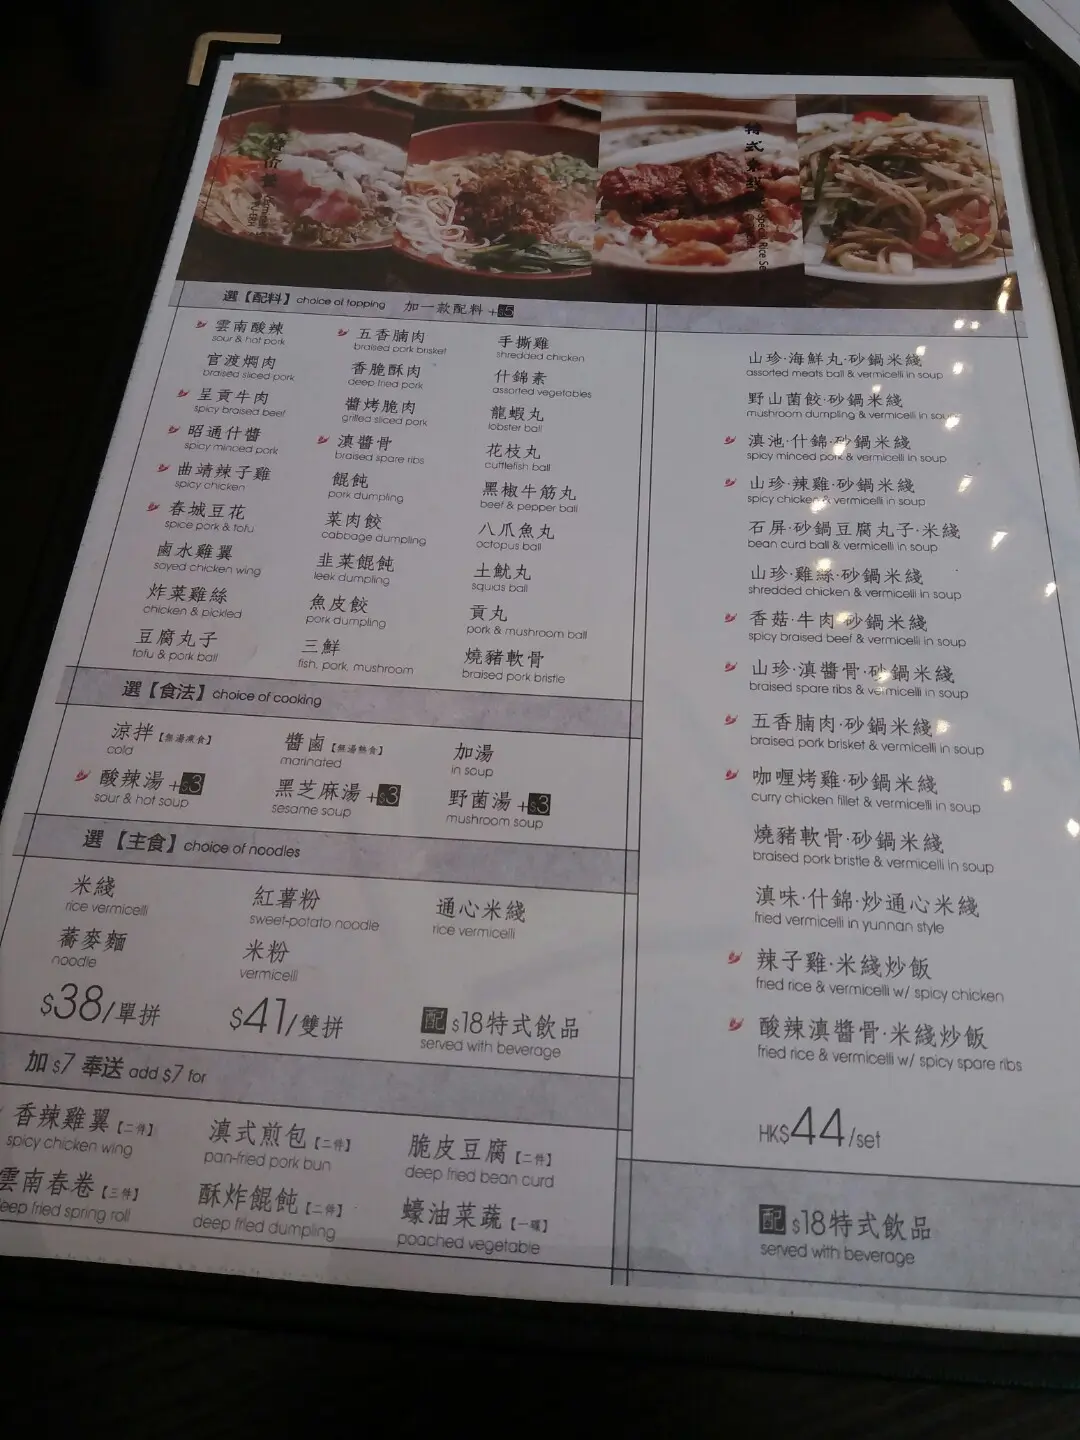 選【配料】choice of topping 加一款配料 +$5
雲南酸辣
sour & hot pork
官渡燜肉
braised sliced pork
呈貢牛肉
spicy braised beef
昭通什醬
spicy minced pork
曲靖辣子雞
spicy chicken
春城豆花
spice pork & tofu
鹵水雞翼
soyed chicken wing
炸菜雞絲
chicken & pickled
豆腐丸子
tofu & pork ball
五香腩肉
braised pork brisket
香脆酥肉
deep fried pork
醬烤脆肉
grilled sliced pork
滇醬骨
braised spare ribs
餛飩
pork dumpling
菜肉餃
cabbage dumpling
韭菜餛飩
leek dumpling
魚皮餃
pork dumpling
三鮮
fish, pork, mushroom
手撕雞
shredded chicken
什錦素
assorted vegetables
龍蝦丸
lobster ball
花枝丸
cuttlefish ball
黑椒牛筋丸
beef & pepper ball
八爪魚丸
octopus ball
土魷丸
squids ball
貢丸
pork & mushroom ball
燒豬軟骨
braised pork bristle
選【食法】choice of cooking
涼拌【無湯凍食】
cold
醬鹵【無湯熱食】
marinated
加湯
in soup
酸辣湯 +$3
sour & hot soup
黑芝麻湯 +$3
sesame soup
野菌湯 +$3
mushroom soup
選【主食】choice of noodles
米綫
rice vermicelli
紅薯粉
sweet-potato noodle
通心米綫
rice vermicelli
蕎麥麵
noodle
米粉
vermicelli
$38/單拼
$41/雙拼
配 $18特式飲品
served with beverage
加 $7 奉送 add $7 for
香辣雞翼【二件】
spicy chicken wing
滇式煎包【二件】
pan-fried pork bun
脆皮豆腐【二件】
deep fried bean curd
雲南春卷【三件】
deep fried spring roll
酥炸餛飩【二件】
deep fried dumpling
蠔油菜蔬【一碟】
poached vegetable
山珍·海鮮丸·砂鍋米綫
assorted meats ball & vermicelli in soup
野山菌餃·砂鍋米綫
mushroom dumpling & vermicelli in soup
滇池·什錦·砂鍋米綫
spicy minced pork & vermicelli in soup
山珍·辣雞·砂鍋米綫
spicy chicken & vermicelli in soup
石屏·砂鍋豆腐丸子·米綫
bean curd ball & vermicelli in soup
山珍·雞絲·砂鍋米綫
shredded chicken & vermicelli in soup
香菇·牛肉·砂鍋米綫
spicy braised beef & vermicelli in soup
山珍·滇醬骨·砂鍋米綫
braised spare ribs & vermicelli in soup
五香腩肉·砂鍋米綫
braised pork brisket & vermicelli in soup
咖喱烤雞·砂鍋米綫
curry chicken fillet & vermicelli in soup
燒豬軟骨·砂鍋米綫
braised pork bristle & vermicelli in soup
滇味·什錦·炒通心米綫
fried vermicelli in yunnan style
辣子雞·米綫炒飯
fried rice & vermicelli w/ spicy chicken
酸辣滇醬骨·米綫炒飯
fried rice & vermicelli w/ spicy spare ribs
HK$44/set
配 $18特式飲品
served with beverage